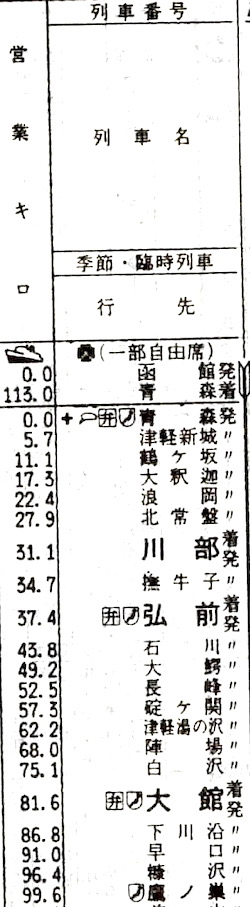 営業キロ
列車番号
列車名
季節・臨時列車
行先
(一部自由席)
0.0 函館発
113.0 青森着
0.0 弁 青森発
5.7 津軽新城〃
11.1 鶴ケ坂〃
17.3 大釈迦〃
22.4 浪岡〃
27.9 北常盤〃
31.1 川部着発
34.7 撫牛子〃
37.4 弁 弘前着発
43.8 石川〃
49.2 大鰐〃
52.5 長峰〃
57.3 碇ケ関〃
62.2 津軽湯の沢〃
68.0 陣場〃
75.1 白沢〃
81.6 弁 大館着発
86.8 下川沿〃
91.0 早口〃
96.4 糠沢〃
99.6 鷹ノ巣〃